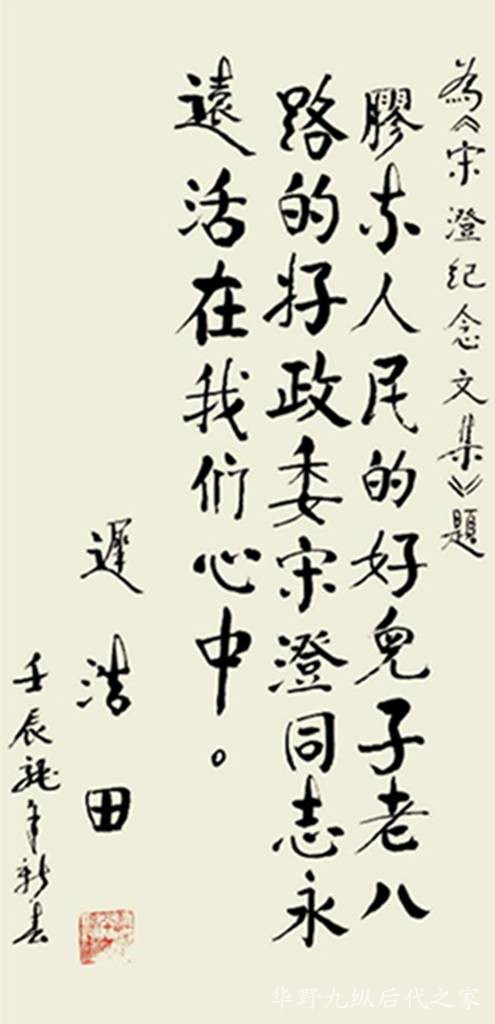 為《宋澄纪念文集》題
膠东人民的好兒子老八
路的好政委宋澄同志永
遠活在我们心中。
遲浩田
壬辰龍年新春
华野九纵后代之家